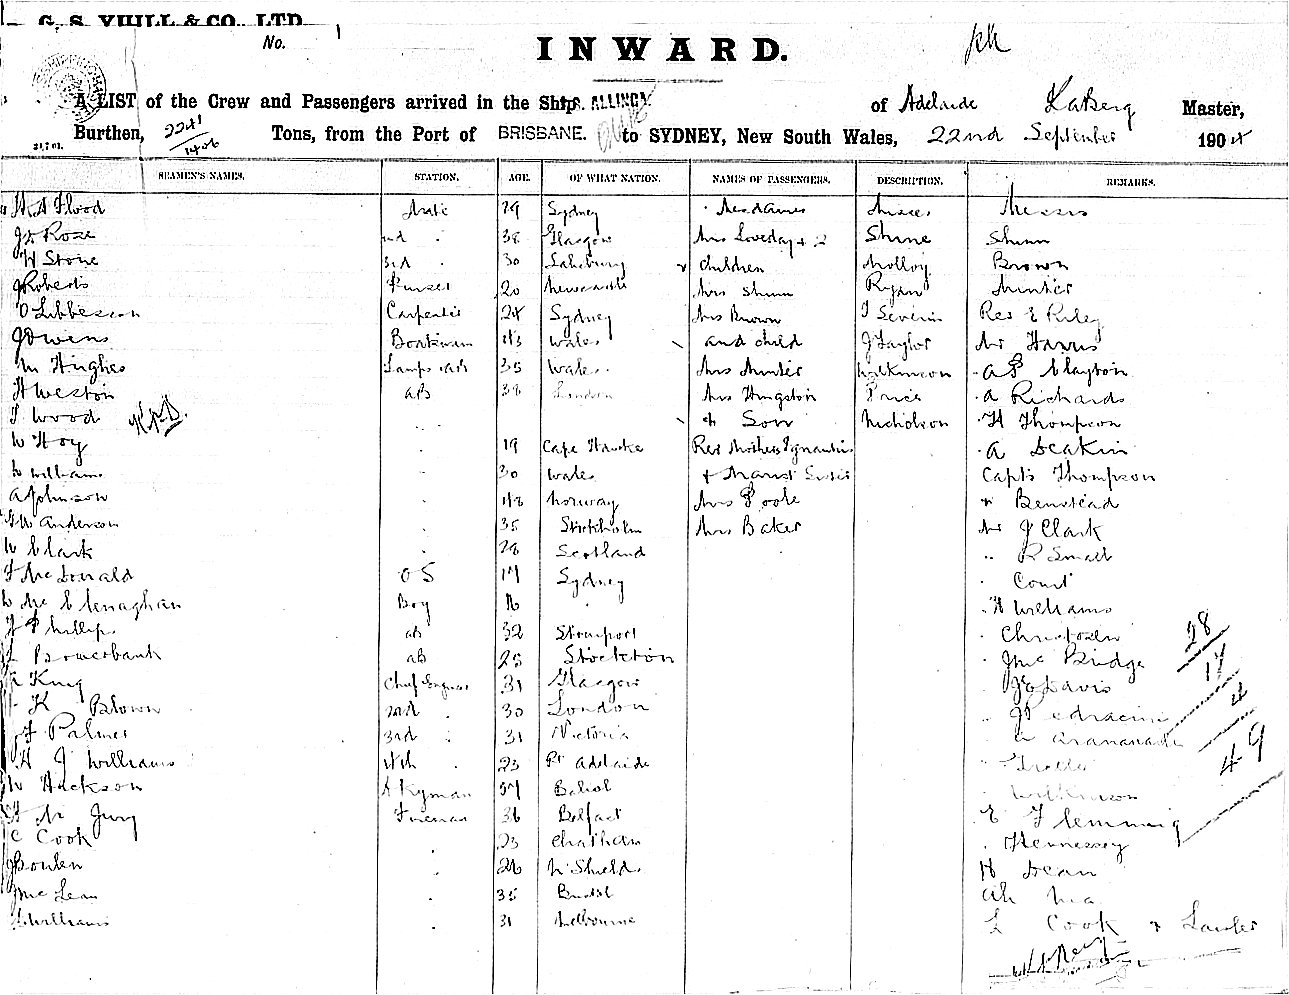 G. S. YUILL & CO., LTD.
No.
INWARD.
A LIST of the Crew and Passengers arrived in the Ship S.S. ALLINGA of Adelaide Master,
Burthen, 2241 / 1406 Tons, from the Port of BRISBANE. to SYDNEY, New South Wales, 22nd September 1904
SEAMEN'S NAMES. STATION. AGE. OF WHAT NATION. NAMES OF PASSENGERS. DESCRIPTION. REMARKS.
Flood Mate 29 Sydney Mesdames Misses Messrs
Rose 2nd " 38 Glasgow Mrs Loveday + 2 Shine Shunn
W Stone 3rd " 30 Salisbury children Molloy Brown
J Roberts Purser 20 Newcastle Mrs Shunn Ryan Hunter
Carpenter 24 Sydney Mrs Brown T Severin Rev E Riley
J Owens 43 Wales and child J Taylor Mr Harris
M Hughes Lamps AB 35 Wales Mrs Hunter Wilkinson A P Clayton
H Weston AB 38 London Mrs Hingston Price A Richards
T Wood " " + Son Nicholson H Thompson
W Hoy " 19 Cape Hawke Rev Mother Ignatius A Deakin
W Williams " 30 Wales + Marist Sister Capts Thompson
A Johnson " 48 Norway Mrs Poole + Benstead
Anderson " 35 Stockholm Mrs Baker Mr J Clark
W Clark " 28 Scotland " R Small
F McDonald OS 17 Sydney " Court
W McClenaghan Boy 16 " " H Williams
Phillips AB 32 Stourport " Christosen
L Bowerbank AB 25 Stockton " J McBridge
A King Chief Engineer 31 Glasgow " Davis
K Brown 2nd " 30 London " J Pedracini
F Palmer 3rd " 31 Victoria
H J Williams 4th " 23 Pt Adelaide
W Hickson 37 Wilkinson
Jury Fireman 36 Belfast E Flemming
C Cook " 23 Chatham " Hennessy
J Boulen " 26 N Shields H Dean
J McLean " 35 Bristol Ah Ma
Williams " 31 Melbourne L Cook + Lawler
28
17
4
49